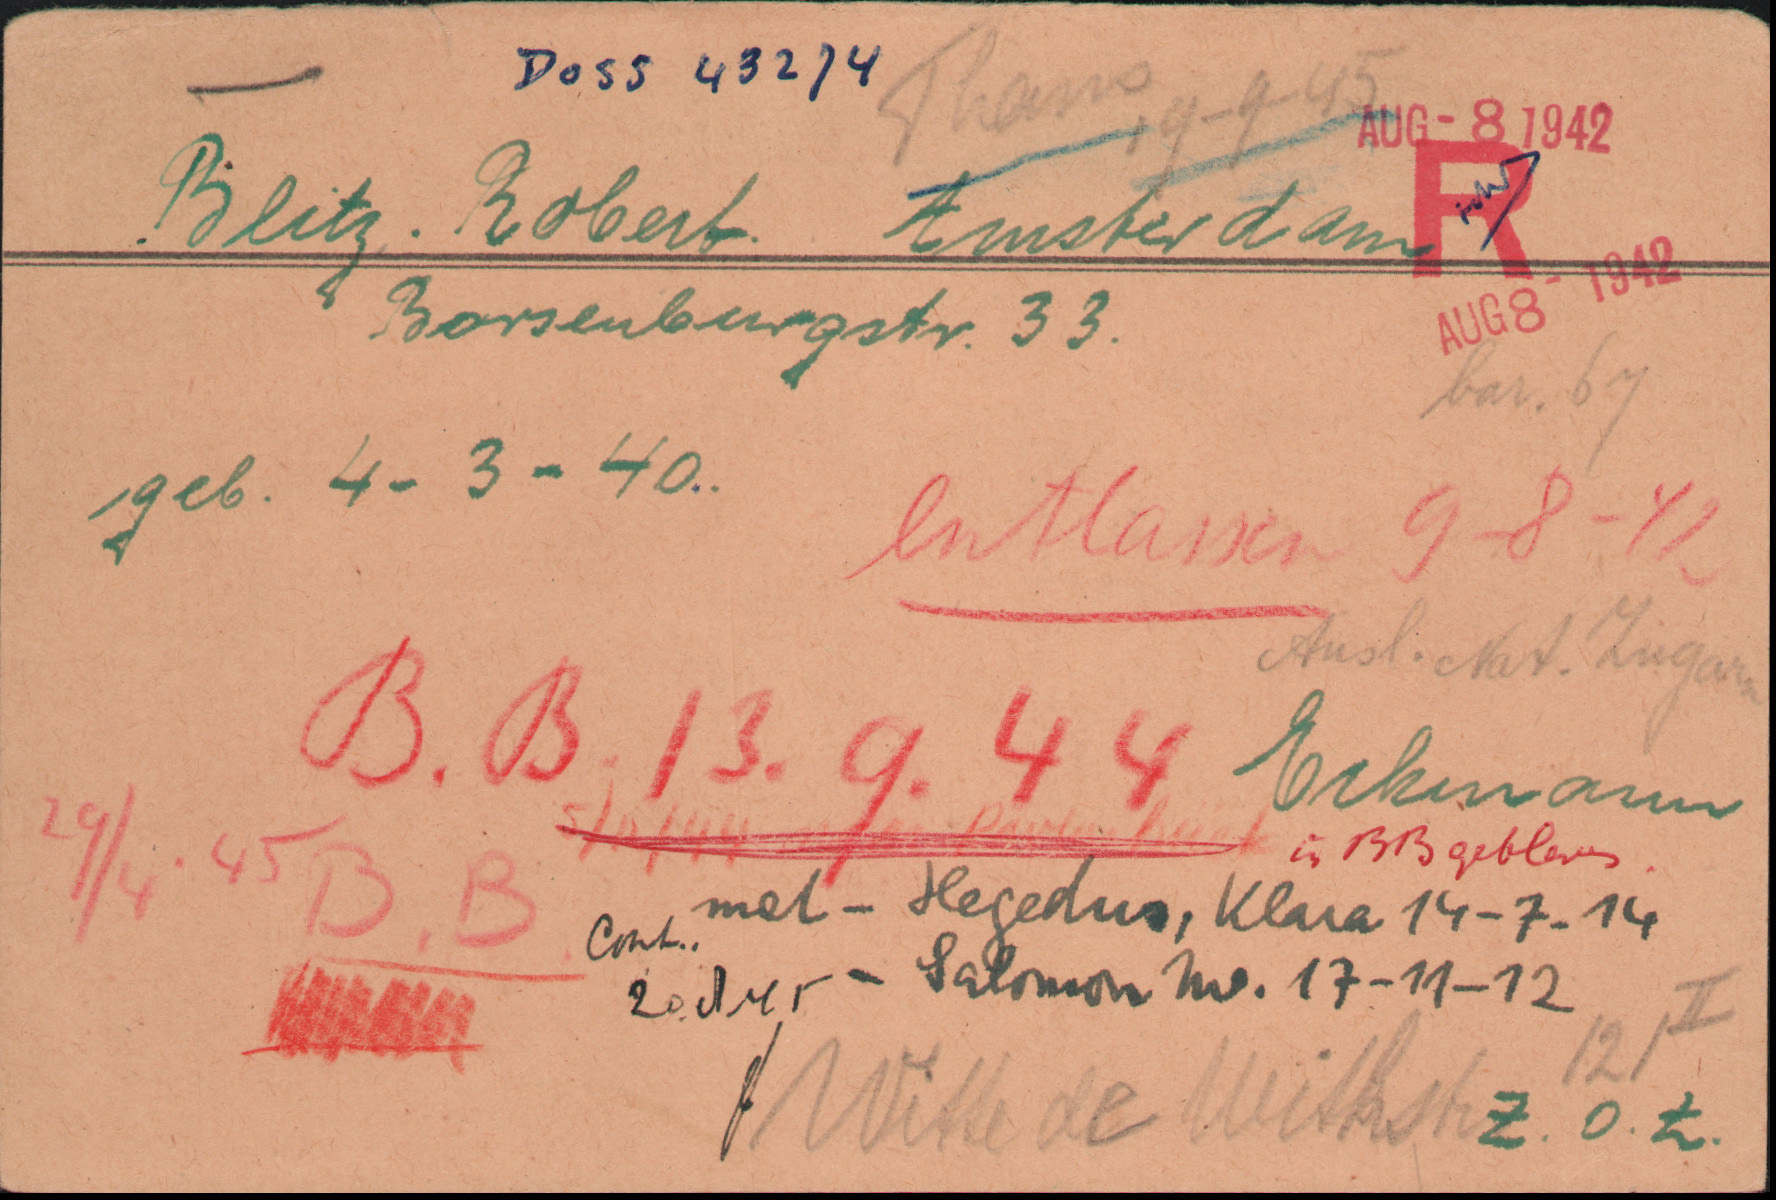 Doss 432/4
Thans 9-9-45
AUG - 8 1942
R
Blitz. Robert. Amsterdam
AUG 8 - 1942
Borsenburgstr. 33.
bar. 67
geb. 4-3-40.
Entlassen 9-8-42
Ausl. Nat. Ungarn
B.B. 13.9.44 Eckmann
29/4.45 B.B.
in BB gebleven.
met - Hegedus, Klara 14-7-14
Cont..
- Salomon Mw. 17-11-12
Witte de Withstr 121 II
Z.O.Z.